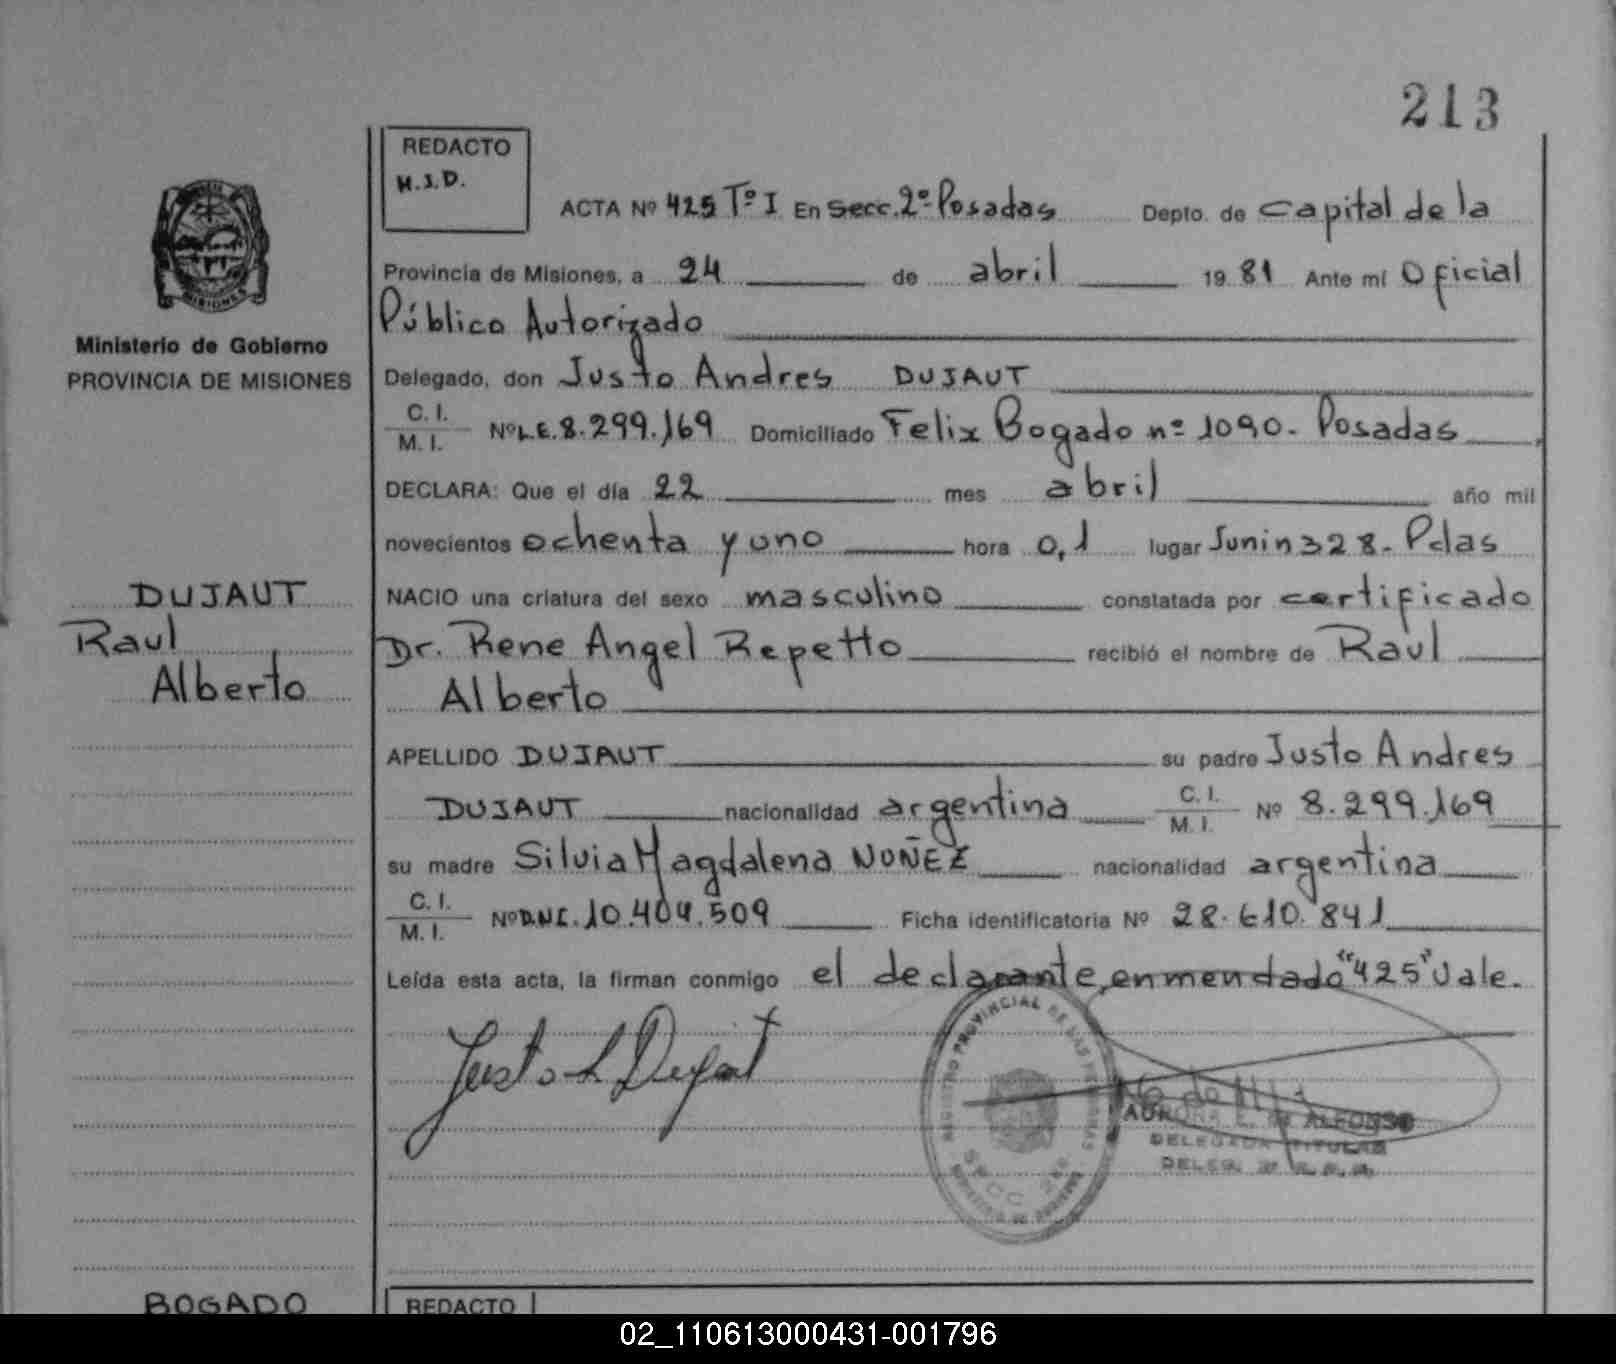 213
REDACTO
M.J.D.
ACTA Nº 425 Tº I En Secc. 2º Posadas Depto. de Capital de la
Provincia de Misiones, a 24 de abril 19 81 Ante mí Oficial
Público Autorizado
MISIONES
Ministerio de Gobierno
PROVINCIA DE MISIONES
Delegado, don Justo Andres DUJAUT
C. I.
M. I. Nº L.E. 8.299.169 Domiciliado Felix Bogado nº 1090 - Posadas
DECLARA: Que el día 22 mes abril año mil
novecientos ochenta y uno hora 0,1 lugar Junin 328 - Pdas
DUJAUT
Raul
Alberto
NACIO una criatura del sexo masculino constatada por certificado
Dr. Rene Angel Repetto recibió el nombre de Raul
Alberto
APELLIDO DUJAUT su padre Justo Andres
DUJAUT nacionalidad argentina C. I. M. I. Nº 8.299.169
su madre Silvia Magdalena NUÑEZ nacionalidad argentina
C. I.
M. I. Nº D.N.I. 10.404.509 Ficha identificatoria Nº 28.610.841
Leída esta acta, la firman conmigo el declarante, enmendado "425" Vale.
Justo A Dujaut
REGISTRO PROVINCIAL DE LAS PERSONAS
SECC 2da
AURORA E. de ALFONSO
DELEGADA TITULAR
DELEG.
BOGADO
REDACTO
02_110613000431-001796